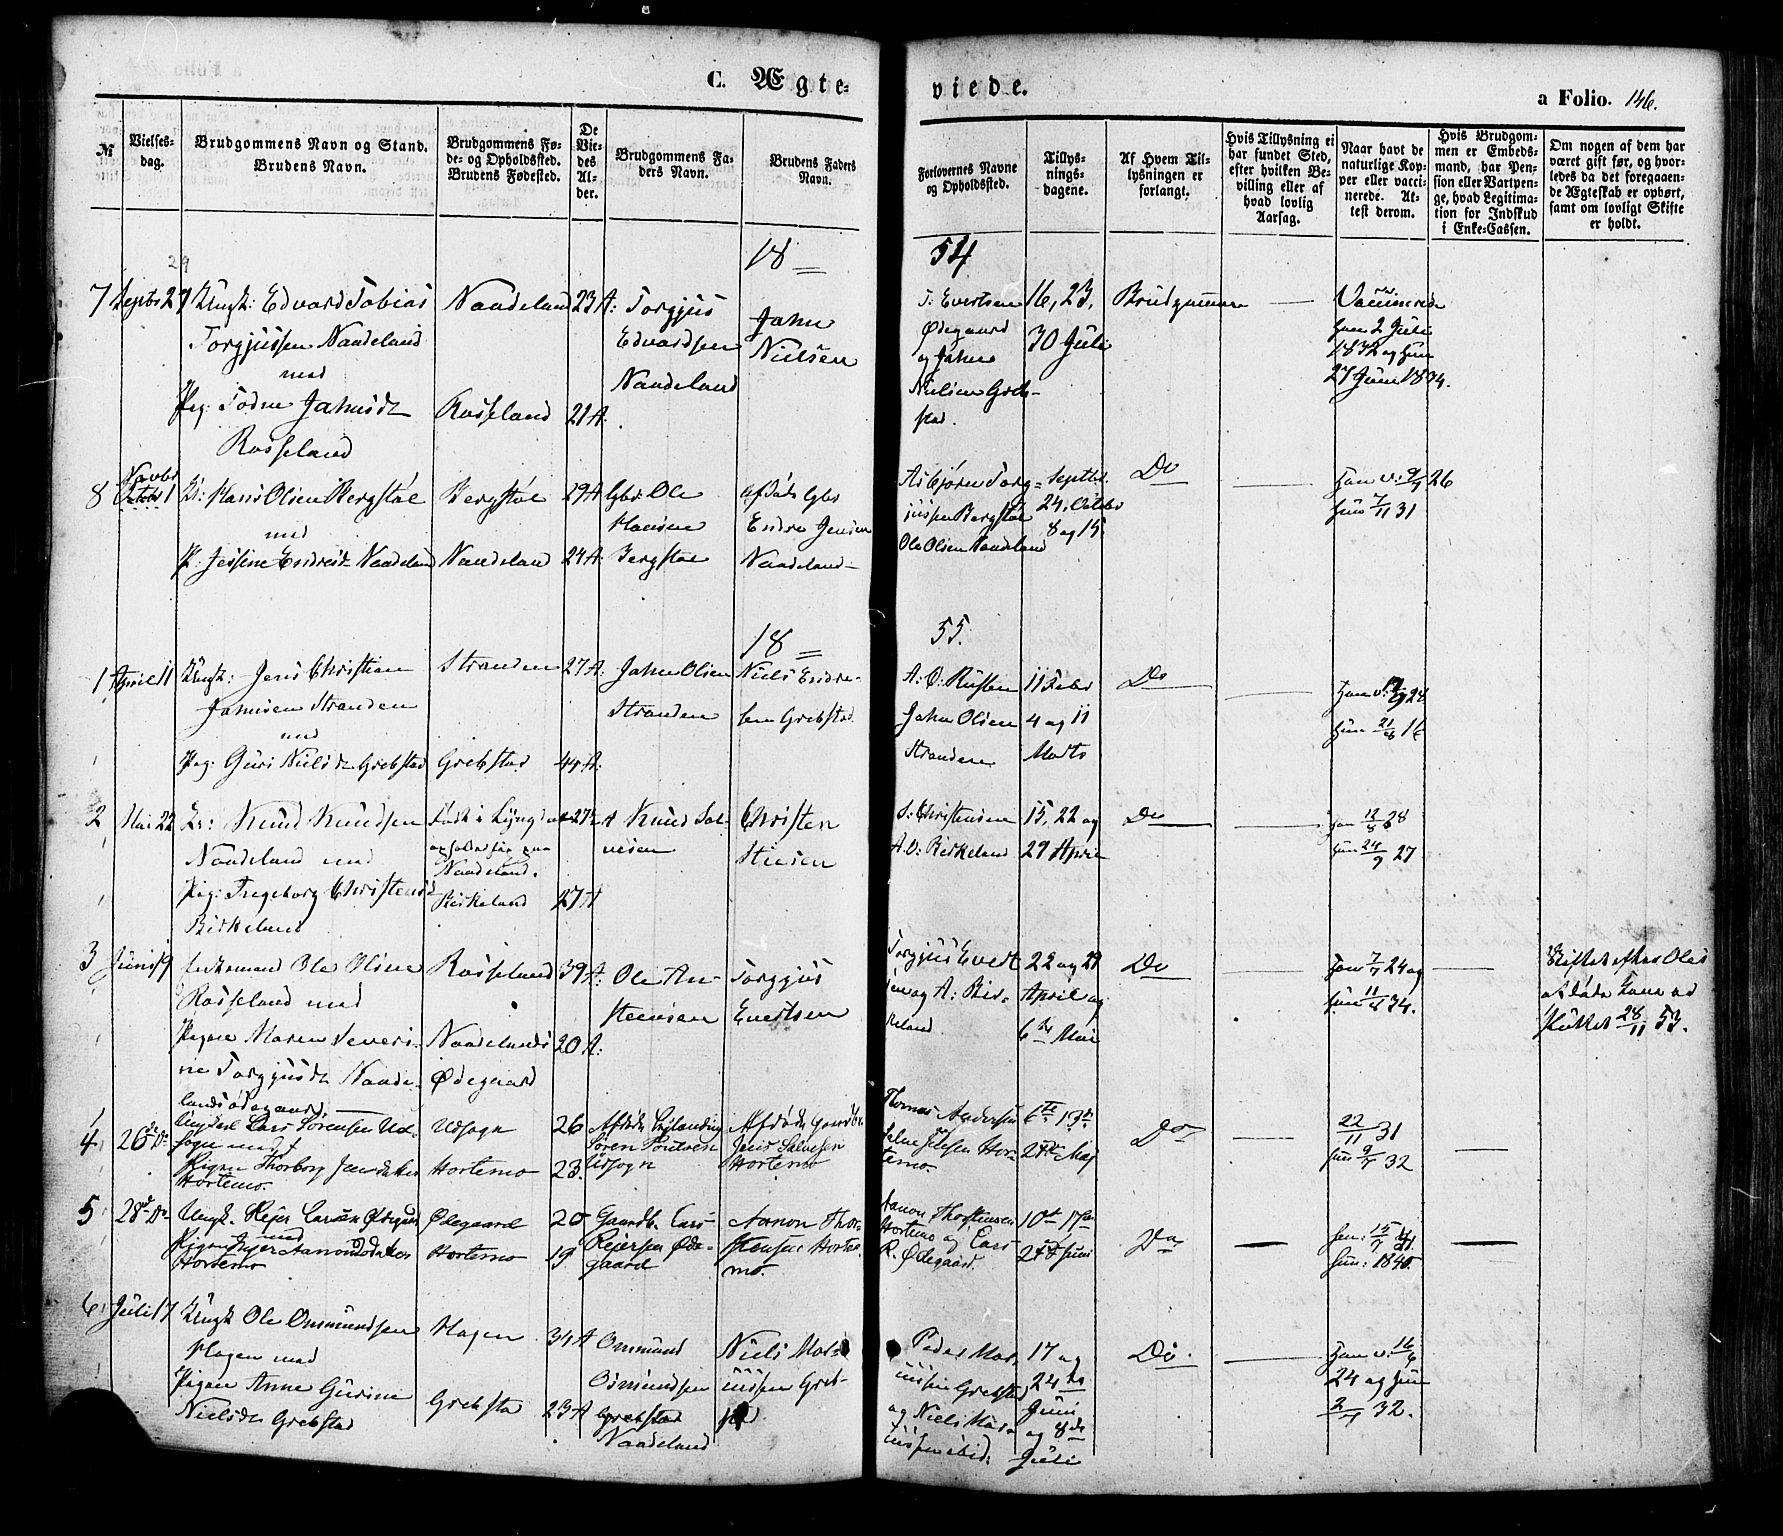 C. Ægte-
viede.
a Folio. 146.
№
Vielses-
dag.
Brudgommens Navn og Stand.
Brudens Navn.
Brudgommens Fø-
de- og Opholdssted.
Brudens Fødested.
De
Vie-
des
Al-
der.
Brudgommens Fa-
ders Navn.
Brudens Faders
Navn.
Forlovernes Navne
og Opholdssted.
Tillys-
nings-
dagene.
Af Hvem Til-
lysningen er
forlangt.
Hvis Tillysning ei
har fundet Sted,
efter hvilken Be-
villing eller af
hvad lovlig
Aarsag.
Naar havt de
naturlige Kop-
per eller vacci-
nerede. At-
test derom.
Hvis Brudgom-
men er Embeds-
mand, har Pen-
sion eller Vartpen-
ge, hvad Legitima-
tion for Indskud
i Enke-Cassen.
Om nogen af dem har
været gift før, og hvor-
ledes da det foregaaen-
de Ægteskab er ophørt,
samt om lovligt Skifte
er holdt.
18
54
7 Septbr 29 Ungk: Edvard Tobias
Torgjussen Naadeland
med
Pig: Todne Jahnsdt
Rosseland
Naadeland 23 A:
Rosseland 21 A.
Torgjus
Edvardsen
Naadeland
Jahn
Nielsen
T: Evertsen
Ødegaard
og Jahn
Nielsen Greb-
stad.
16, 23,
30 Juli
Brudgommen
han 2 Juli
1832 og hun
27 Juni 1834.
8 Novbr 1 Hans Olsen Bergstøl
med
P: Jessine Endresdt Naadeland
Bergstøl 29 A
Naadeland 24 A.
Gbr: Ole
Hansen
Bergstøl
Afdøde Gbr
Endre Jensen
Naadeland
Asbjørn Torg-
jussen Bergstøl
Ole Olsen Naadeland
Septbr.
24, Octobr
8 og 15
Do
Han v: 9/7 26
hun 7/11 31
18
55.
1 April 11 Ungk: Jens Christian
Jahnsen Stranden
med
Pig: Guri Nielsdt Grebstad
Stranden 27 A.
Grebstad 44 A.
Jahn Olsen
Stranden
Niels Endre-
sen Grebstad
A: O: Rusten
Jahn Olsen
Stranden
11 Febr
4 og 11
Marts
Do
hun 21/8 16
2 Mai 22 Knud Knudsen
Naadeland med
Pig: Ingeborg Christensd
Birkeland
Født i Lyngdal
Naadeland.
Birkeland 27 A
Knud Sal-
vesen
Christen
Stiesen
S: Christensen
A. O: Birkeland
15, 22 og
29 April
Do
han 12/8 28
hun 24/9 27
3 Juni 19 Enkemand Ole Olsen
Rosseland med
Pigen Maren Severi-
ne Torgjusdt Naade-
landsødegaard
Rosseland 39 A:
Naadelands
Ødegaard 20 A:
Ole An-
steensen
Torgjus
Evertsen
Torgjus Evert
sen og A: Bir-
keland
22 og 29
April og
6te Mai
Do
han 7/7 24 og
hun 11/4 34.
Skiftet efter Oles
Afdøde Kone er
sluttet 28/11 53.
4 26de Do Ungkarl Lars Sørensen Ud-
sogn med
Pigen Thorborg Jensdatter
Hortemo.
Udsogn 26
Hortemo 23.
Søren
Udsogn
Afdøde Gaardbr.
Jens Salvesen
Hortemo
Thomas Andersen
Hor-
temo.
6te 13de
27de Maj
Do
22/11 31
hun 9/7 32
5 28de Do Ungk. Rejer Larsen Ødegaard
med
Pigen Inger Aanonsdatter
Hortemo
Ødegaard 25
Hortemo 19
Gaardb. Lars
Rejersen Øde-
gaard
Aanon Thor-
stensen Horte-
mo.
Aanon Thorstensen
Hortemo og Lars
R. Ødegaard.
10de 17de
24de Juni
Do
hun: 1840.
6 Juli 17 Ungk Ole Ommundsen
Hagen med
Pigen Anne Gurine
Nielsdt Grebstad
Hagen 34 A
Grebstad 23 A
Ommund
Osmundsen
Grebstad
Naadeland
Niels Mar-
iussen Greb-
stad
Peder Mar-
iussen Grebstad
og Niels Mar-
iussen ibid:
17 og
24de
Juni
og 8de
Juli
Do.
Han v: 16/6
24 og hun
2/7 32.